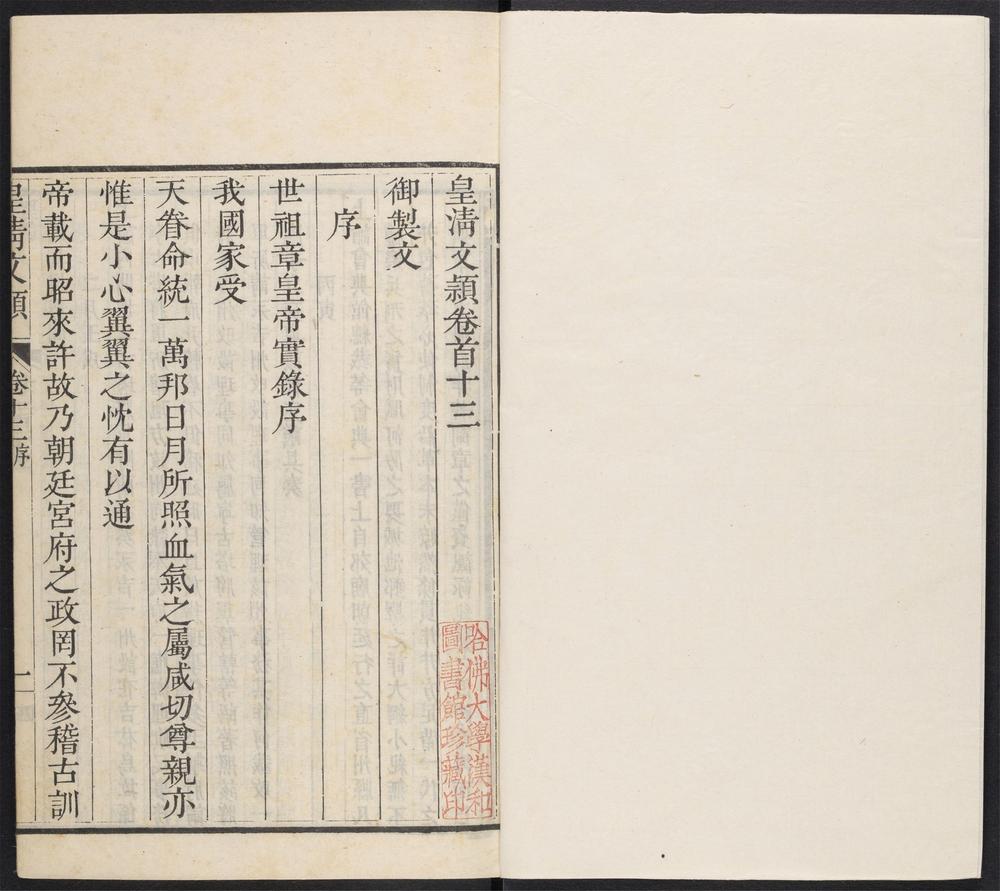 皇清文穎卷首十三
御製文
序
世祖章皇帝實錄序
我國家受
天眷命統一萬邦日月所照血氣之屬咸切尊親亦
惟是小心翼翼之忱有以通
帝載而昭來許故乃朝廷宮府之政罔不參稽古訓
皇清文穎
卷十三 序
一
哈佛大學漢和
圖書館珍藏印